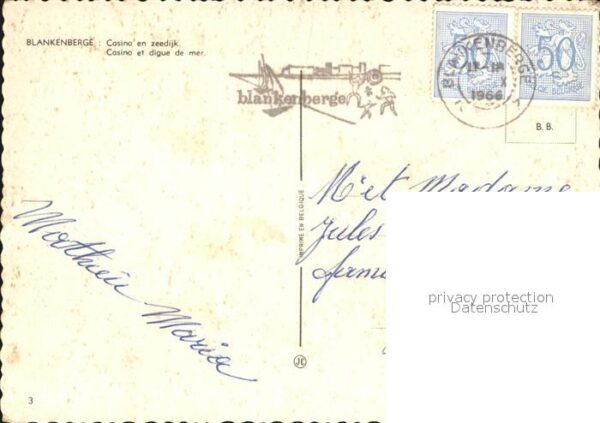 BLANKENBERGE : Casino en zeedijk.
Casino et digue de mer.
blankenberge
BLANKENBERGE
1966
50
50
B. B.
M et Madame
Jules
IMPRIMÉ EN BELGIQUE
Mathieu
Maria
privacy protection
Datenschutz
JC
3